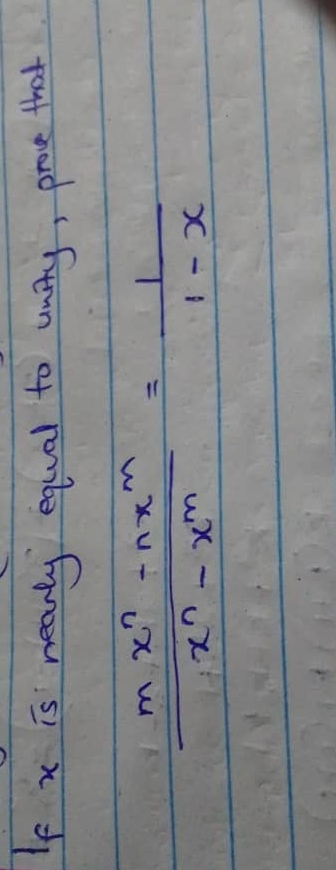 If x is nearly equal to unity, prove that
m xⁿ - n xᵐ / xⁿ - xᵐ = 1 / 1 - x